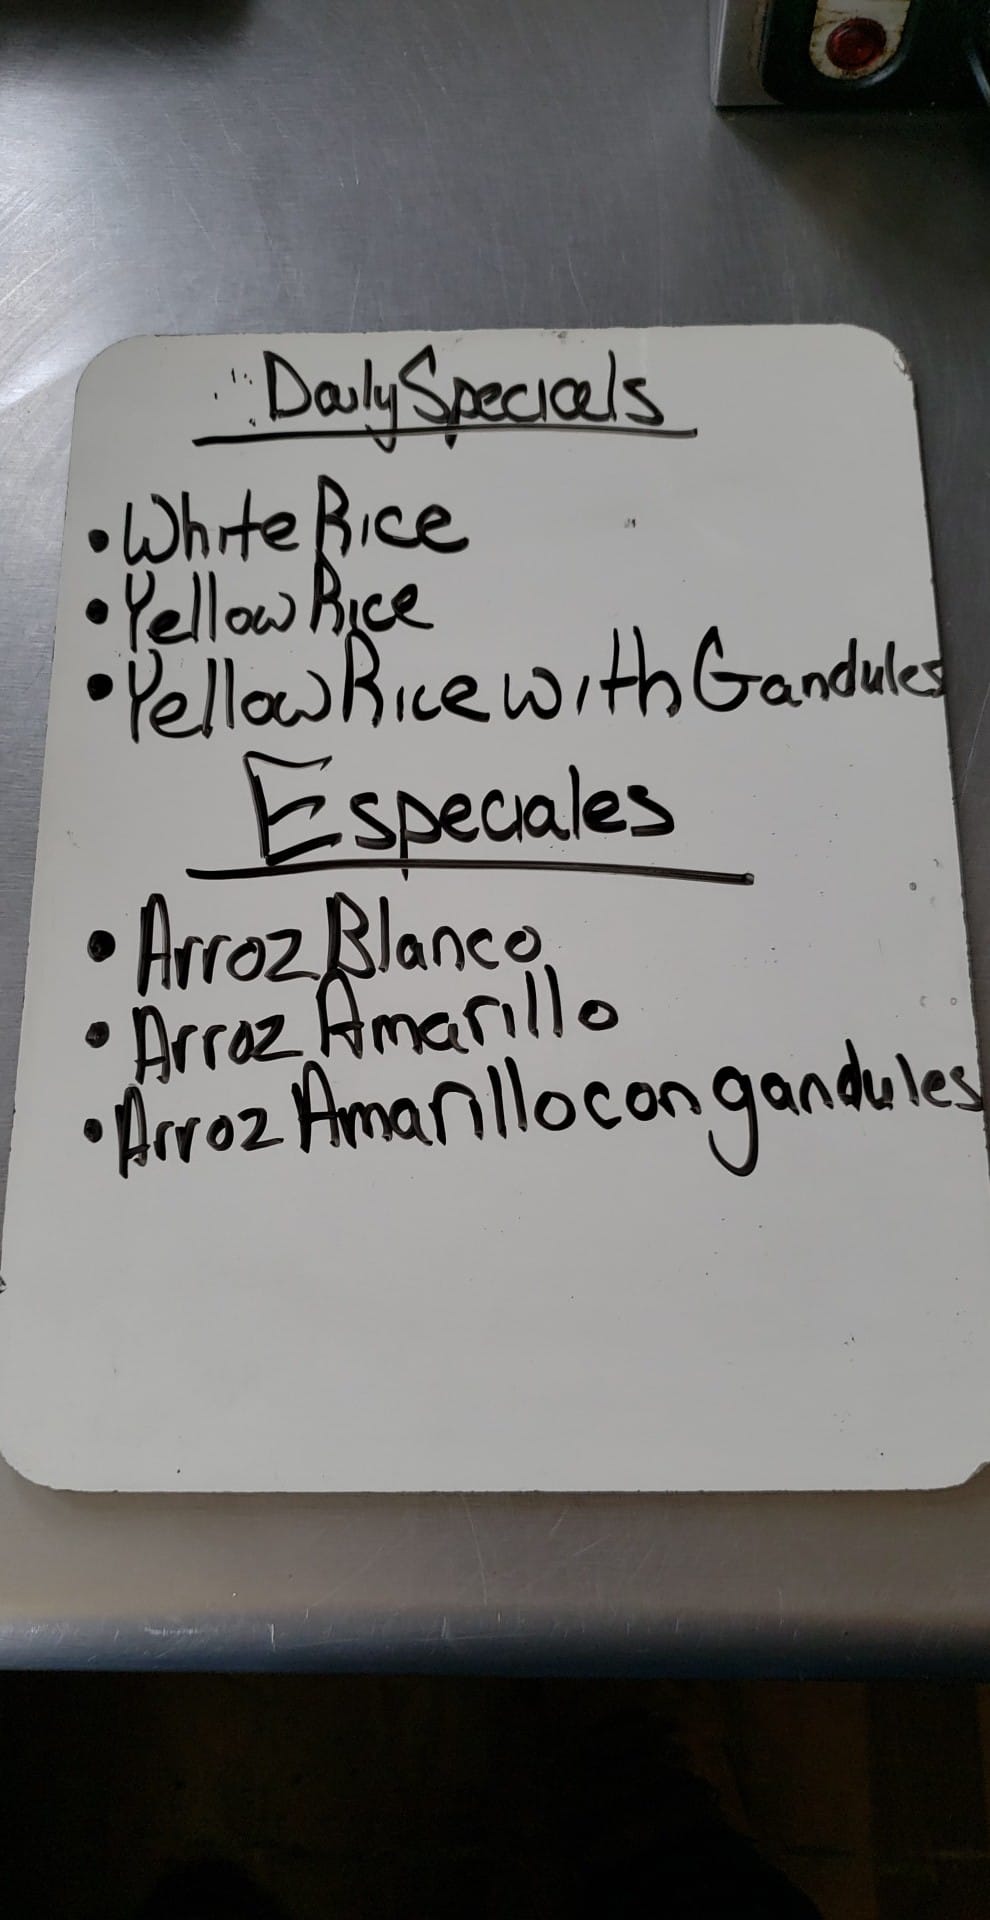 Daily Specials
• White Rice
• Yellow Rice
• Yellow Rice with Gandules
Especiales
• Arroz Blanco
• Arroz Amarillo
• Arroz Amarillo con gandules